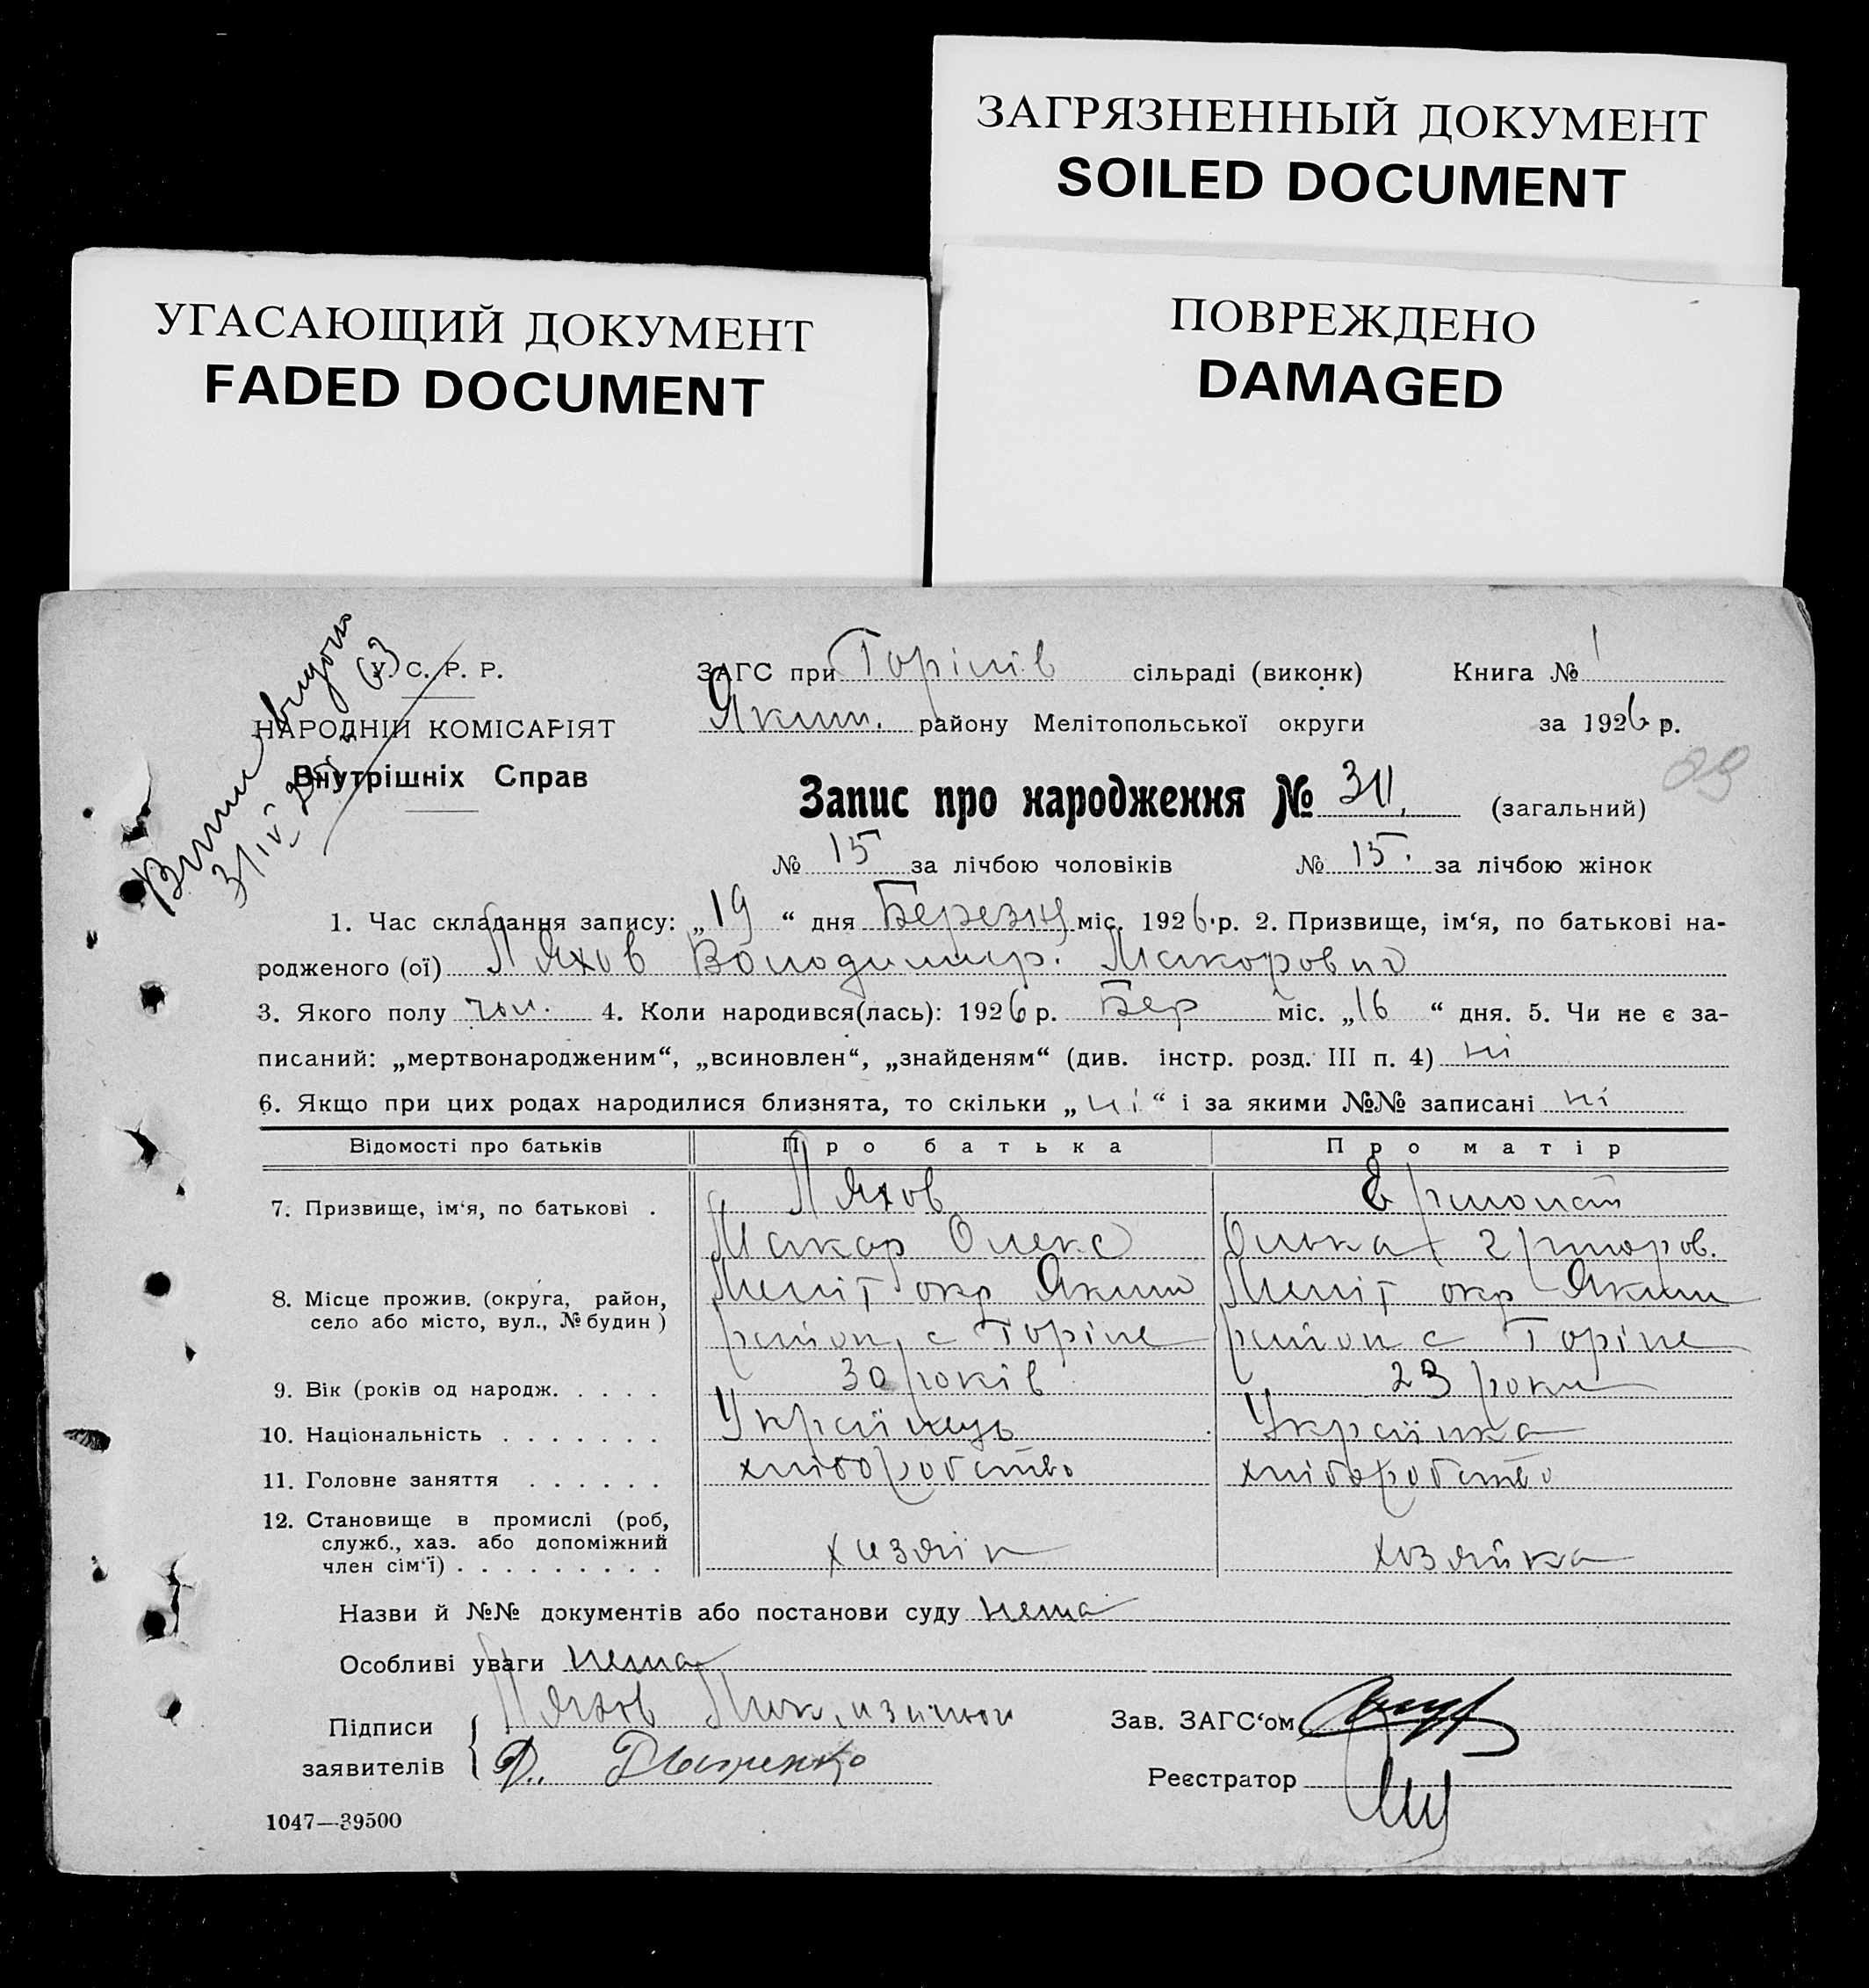 ЗАГРЯЗНЕННЫЙ ДОКУМЕНТ
SOILED DOCUMENT
УГАСАЮЩИЙ ДОКУМЕНТ
FADED DOCUMENT
ПОВРЕЖДЕНО
DAMAGED
У. С. Р. Р.
НАРОДНІЙ КОМІСАРІЯТ
Внутрішніх Справ
ЗАГС при Горілів сільраді (виконк) Книга № 1
Яким. району Мелітопольської округи за 1926 р.
Запис про народження № (загальний)
№ 15 за лічбою чоловіків № 15. за лічбою жінок
1. Час складання запису: „19“ дня Березня міс. 1926 р. 2. Призвище, ім‘я, по батькові на-
родженого (ої) Ляхов Володимир. Макорович
3. Якого полу чол. 4. Коли народився(лась): 1926 р. Бер міс. „16“ дня. 5. Чи не є за-
писаний: „мертвонародженим“, „всиновлен“, „знайденям“ (див. інстр. розд. III п. 4) ні
6. Якщо при цих родах народилися близнята, то скільки „ні“ і за якими №№ записані ні
Відомості про батьків Про батька Про матір
7. Призвище, ім‘я, по батькові . Ляхов
Макар Олекс
8. Місце прожив. (округа, район, село або місто, вул., № будин) Меліт окр Яким Меліт окр Яким
район с Горіле район с Горіле
9. Вік (років од народж. . . . . 30 років 23 роки
10. Національність . . . . . . . Українець Українка
11. Головне заняття . . . . . . хліборобство хліборобство
12. Становище в промислі (роб, служб., хаз. або допоміжний член сім‘ї) . . . . . . . . . хазяїн хозяйка
Назви й №№ документів або постанови суду нема
Особливі уваги нема
Підписи заявителів Ляхов
Зав. ЗАГС‘ом
Реєстратор
1047—39500